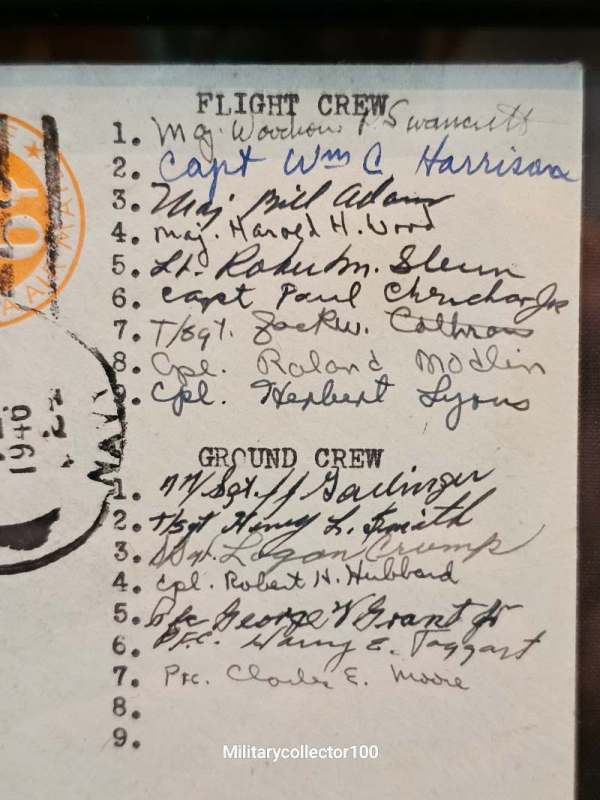 FLIGHT CREW
1. Maj. Woodrow P. Swancutt
2. Capt Wm C Harrison
3. Maj Bill Adams
4. Maj. Harold H. Wood
5. Lt. Robert M. Glenn
6. Capt Paul Chenchar Jr
7. T/Sgt. Jack W. Cothran
8. Cpl. Roland Modlin
9. Cpl. Herbert Lyons
GROUND CREW
1. M/Sgt.
2. T/Sgt Henry L. Smith
3. Logan Crump
4. Cpl. Robert H. Hubbard
5. Pfc George V Grant Jr
6. P.F.C. Harry E. Taggart
7. Pfc. Charles E. Moore
8.
9.
1946
NAVY
AIR MAIL
Militarycollector100